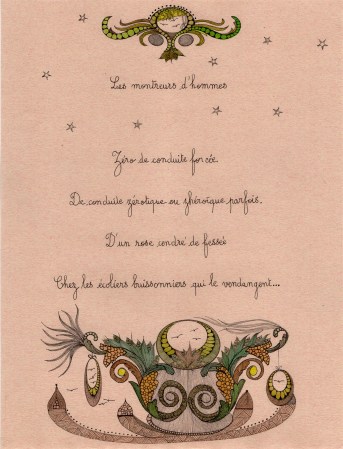 Les montreurs d'hommes
Zéro de conduite forcée
De conduite zérotique ou zhéroïque parfois.
D'un rose cendré de fessée
Chez les écoliers buissonniers qui le vendangent...